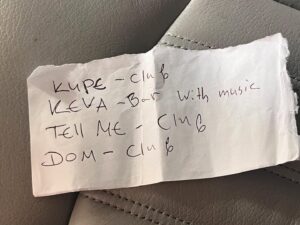 KUPE - Club
KEVA - Bar with music
TELL ME - Club
DOM - Club